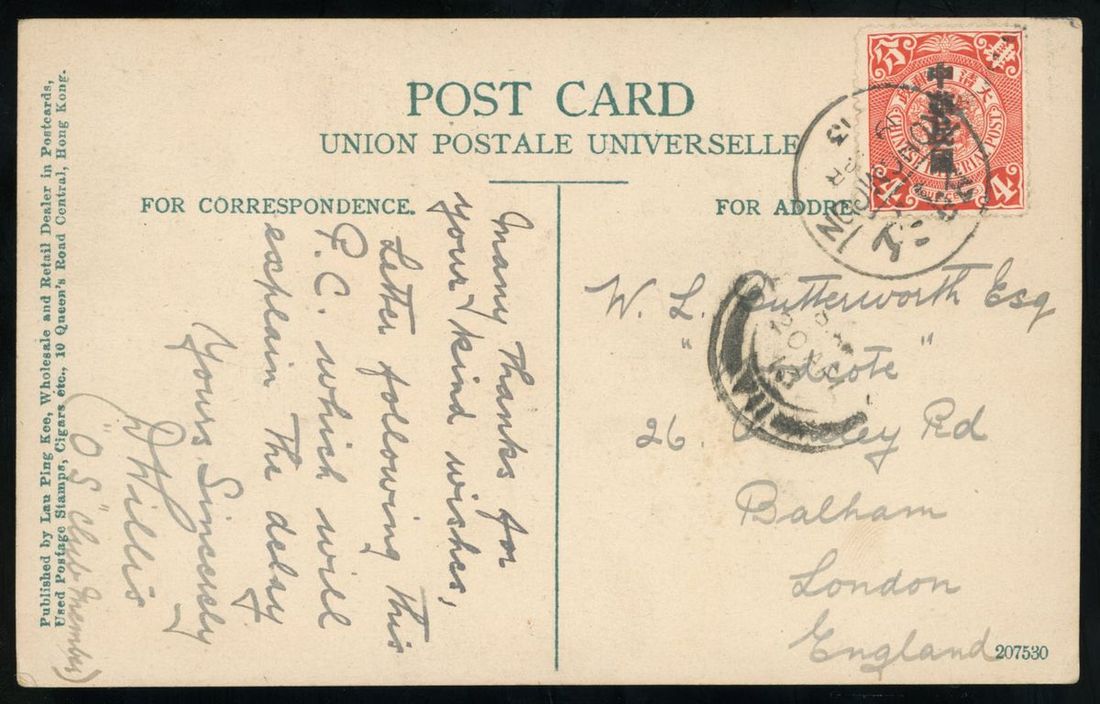 POST CARD
UNION POSTALE UNIVERSELLE
FOR CORRESPONDENCE.
FOR ADDRE
Many Thanks for
your kind wishes,
Letter following this
P.C. which will
explain the delay
Yours Sincerely
Willis
("O S" Club Member)
W. L. Butterworth Esq
" "
26. Rd
Balham
London
England
207530
Published by Lau Ping Kee, Wholesale and Retail Dealer in Postcards,
Used Postage Stamps, Cigars etc., 10 Queen's Road Central, Hong Kong.
中華民國
大清
CHINESE IMPERIAL POST
4 4
13